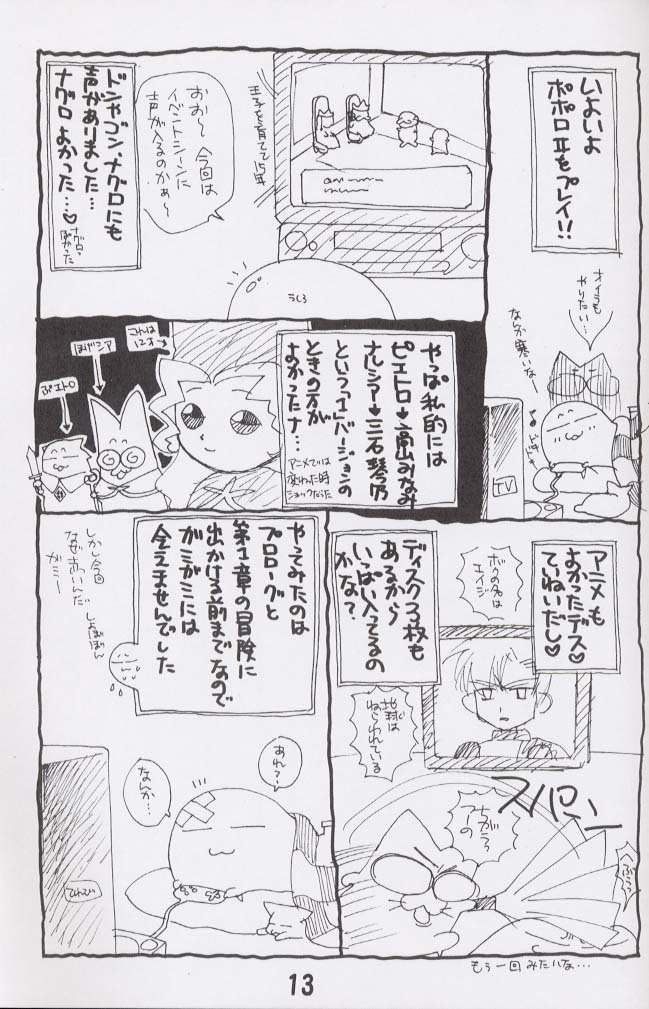 いよいよ
ポポロⅡをプレイ!!
オイラも
やりたい…
なんか寒いなー
TV
王子を育てて15年
おお〜今回は
イベントシーンに
声が入るのかぁ〜
うしろ
ドンやゴン、ナグロにも
声がありました…
ナグロよかった…♡
やっぱ私的には
ピエトロ→高山みなみ
ナルシア→三石琴乃
というCMバージョンの
ときの方が
よかったナ…
アニメでは
変わった時
ショックだった
これは
12才→
ほげシア
ぷエトロ
アニメも
よかったデス♡
ていねいだし♡
ボクの名は
エイジ
地球は
ねらわれている
ディスク3枚も
あるから
いっぱい入ってるの
かな?
スパーン
ちがう
アの
へぶぅっ
もう一回みたいな…
やってみたのは
プロローグと
第1章の冒険に
出かける前までなので
ガミガミには
会えませんでした
しかし今回
なぜ高いんだ
ガミー
しょぼぼん
あれ?
なんか…
てれび
13